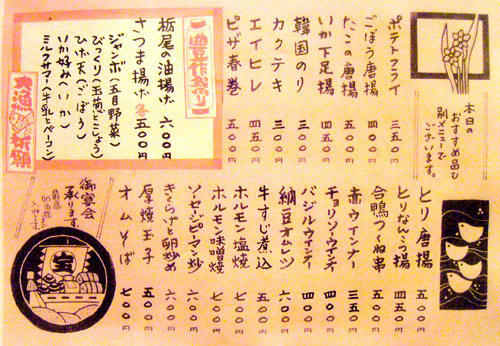 本日の
おすすめ品も
別メニューで
ございます。
ポテトフライ 三五〇円
ごぼう唐揚 四〇〇円
たこの唐揚 五〇〇円
いか下足揚 四五〇円
韓国のり 三〇〇円
カクテキ 三〇〇円
エイヒレ 四五〇円
ピザ春巻 五〇〇円
豊作祭り
栃尾の油揚げ 六〇〇円
さつま揚げ 各五〇〇円
ジャンボ(五目野菜)
びっくり(玉葱とこしょう)
ひげ天(ごぼう)
いか好み(いか)
ミルクサマー(牛乳とベーコン)
大漁祈願
ヒリ唐揚 五〇〇円
ヒリなんこつ揚 四五〇円
合鴨つくね串 五〇〇円
赤ウインナー 三五〇円
チョリソーウインナー 四〇〇円
バジルウインナー 四〇〇円
納豆オムレツ 六〇〇円
牛すじ煮込 五〇〇円
ホルモン塩焼 七〇〇円
ホルモン味噌焼 七〇〇円
ソーセージピーマン炒 六〇〇円
きくらげと卵炒め 六〇〇円
厚焼玉子 五〇〇円
オムそば 七〇〇円
御宴会
承ります。
宝